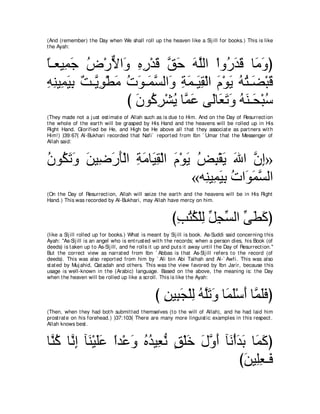 (And (remember) the Day when We shall roll up the heaven like a Sijill for books.) This is like
the Ayah:
﴿وَمَا قَدَرُواْ اللَّهَ حَقَّ قَدْرِهِ وَالاٌّرْضُ جَمِيعـاً
قَبْضَـتُهُ يَوْمَ الْقِيَـمَةِ وَالسَّمَـوَتُ مَطْوِيَّـتٌ بِيَمِينِهِ
سُبْحَـنَهُ وَتَعَالَى عَمَّا يُشْرِكُونَ ﴾
(They made not a just estimate of Allah such as is due to Him. And on the Day of Resurrection
the whole of the earth will be grasped by His Hand and the heavens will be rolled up in His
Right Hand. Glorified be He, and High be He above all that they associate as partners with
Him!) ﴾39:67﴿ Al-Bukhari recorded that Nafi` reported from Ibn `Umar that the Messenger of
Allah said:
«إِنَّ اللهَ يَقْبِضُ يَوْمَ الْقِيَامَةِ الْأَرَضِينَ وَتَكُونُ
السَّمَوَاتُ بِيَمِينِه»
(On the Day of Resurrection, Allah will seize the earth and the heavens will be in His Right
Hand.) This was recorded by Al-Bukhari, may Allah have mercy on him.
﴿كَطَىِّ السِّجِلِّ لِلْكُتُبِ﴾
(like a Sijill rolled up for books.) What is meant by Sijill is book. As-Suddi said concerning this
Ayah: "As-Sijill is an angel who is entrusted with the records; when a person dies, his Book (of
deeds) is taken up to As-Sijill, and he rolls it up and puts it away until the Day of Resurrection."
But the correct view as narrated from Ibn `Abbas is that As-Sijill refers to the record (of
deeds). This was also reported from him by `Ali bin Abi Talhah and Al-`Awfi. This was also
stated by Mujahid, Qatadah and others. This was the view favored by Ibn Jarir, because this
usage is well-known in the (Arabic) language. Based on the above, the meaning is: the Day
when the heaven will be rolled up like a scroll. This is like the Ayah:
﴿فَلَمَّا أَسْلَمَا وَتَلَّهُ لِلْجَبِينِ ﴾
(Then, when they had both submitted themselves (to the will of Allah), and he had laid him
prostrate on his forehead.) ﴾37:103﴿ There are many more linguistic examples in this respect.
Allah knows best.
﴿كَمَا بَدَأْنَآ أَوَّلَ خَلْقٍ نُّعِيدُهُ وَعْداً عَلَيْنَآ إِنَّا كُنَّا
فَـعِلِينَ﴾